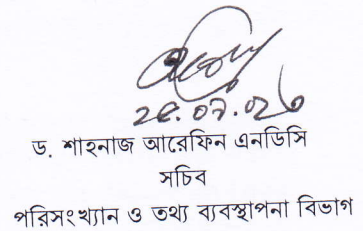 ২৫.০৭.০২৩
ড. শাহনাজ আরেফিন এনডিসি
সচিব
পরিসংখ্যান ও তথ্য ব্যবস্থাপনা বিভাগ